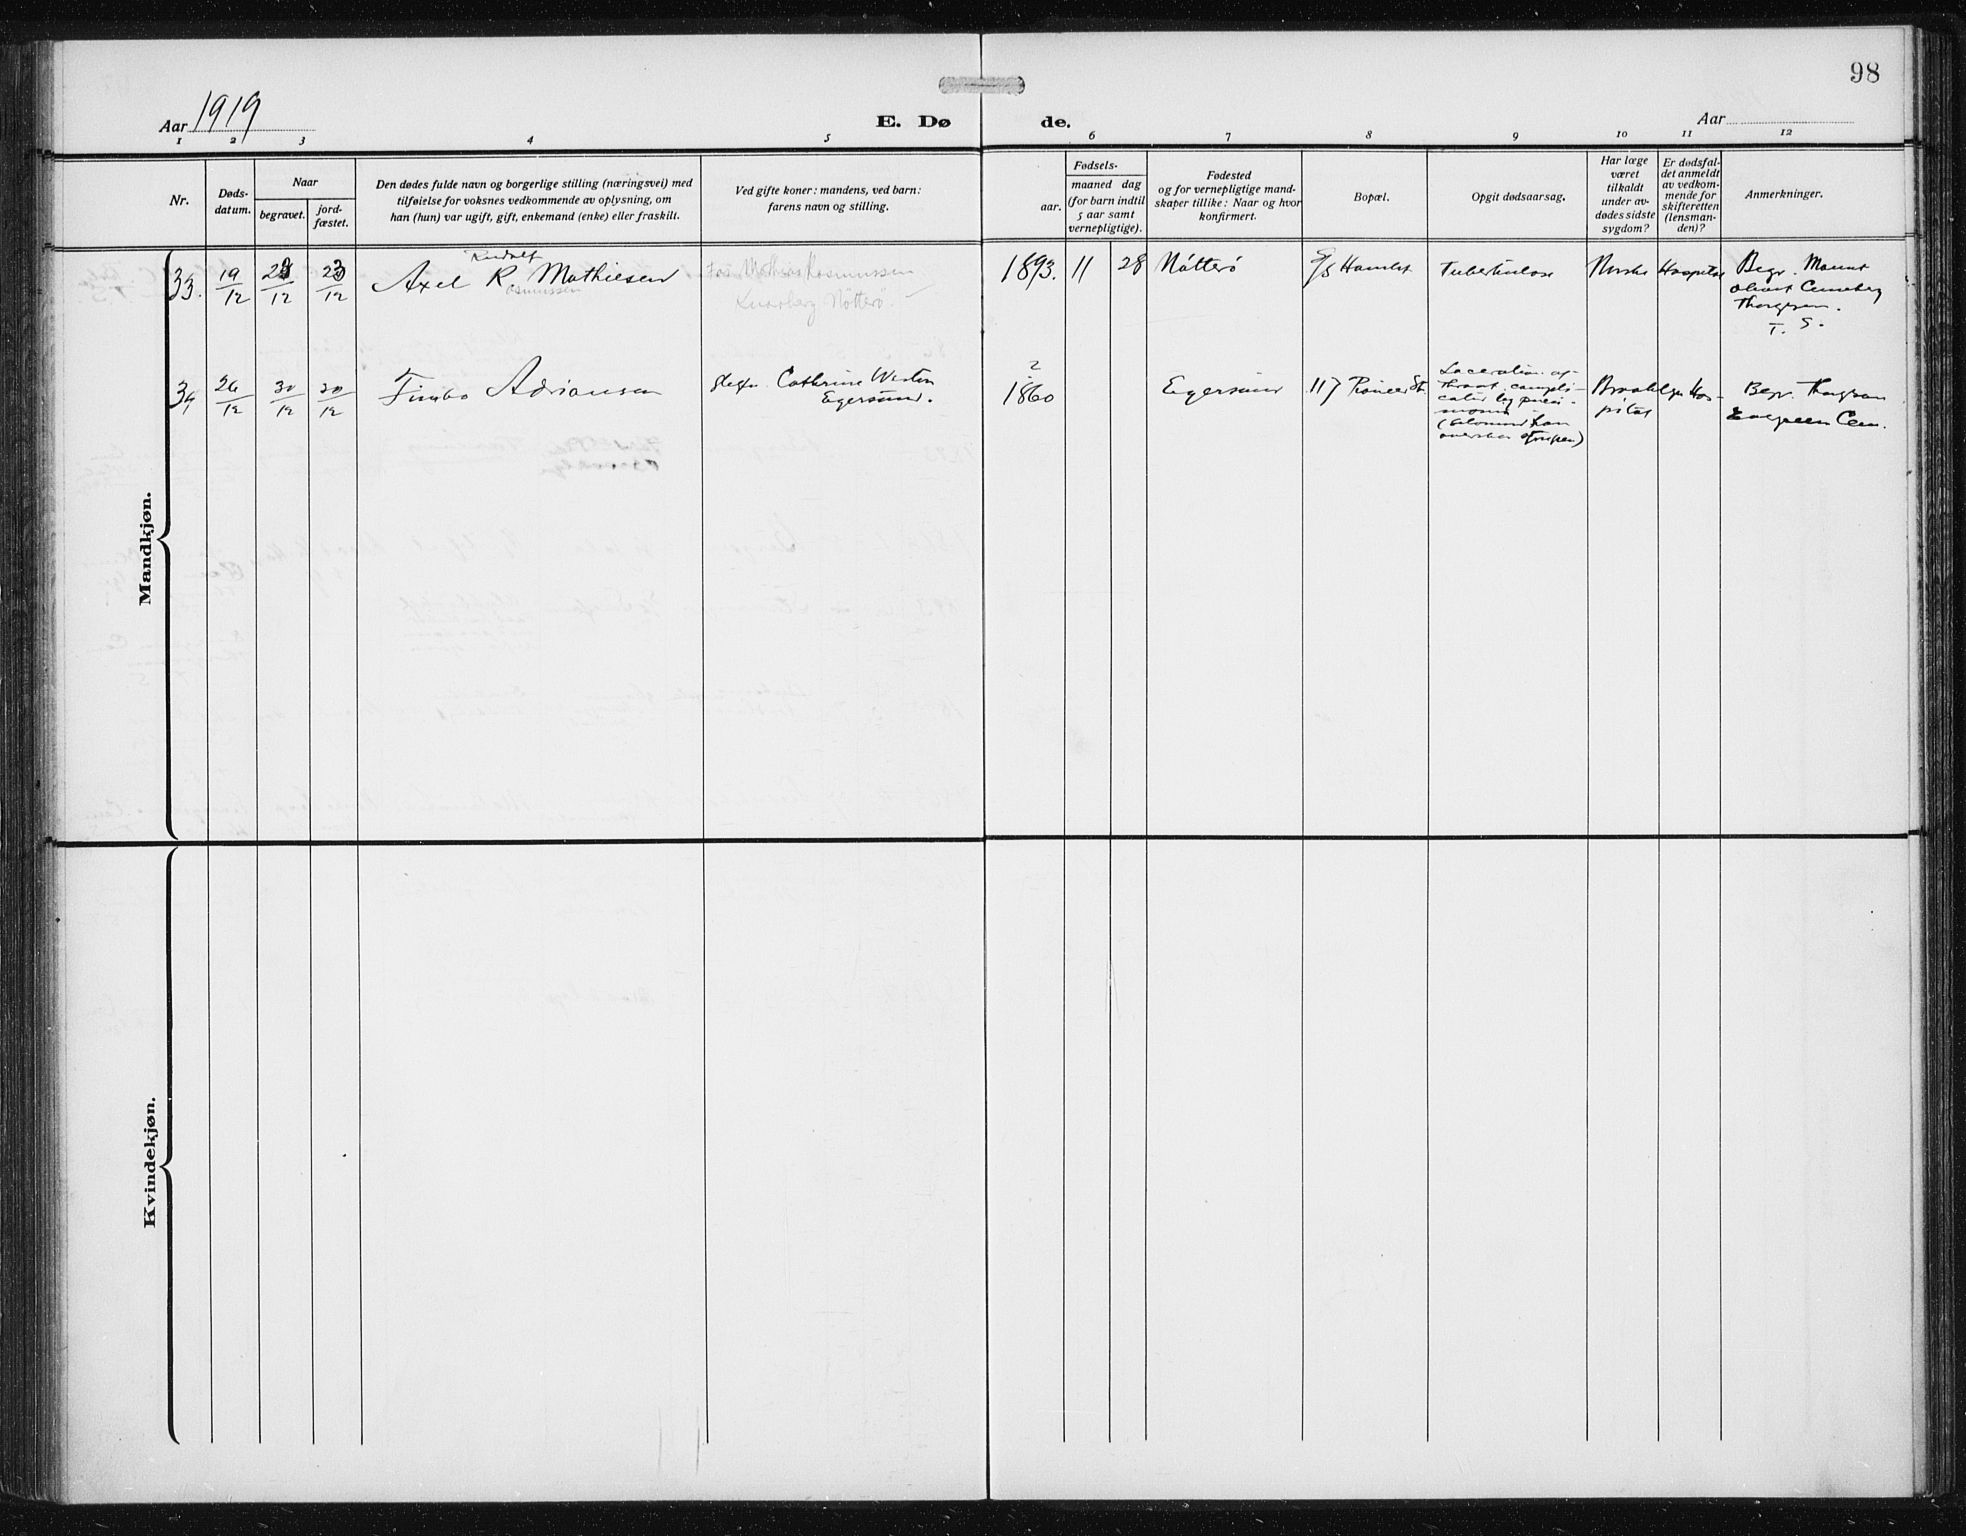 98
Aar 1919
E. Dø
de.
Aar
1 2 3 4 5 6 7 8 9 10 11 12
Nr.
Døds-
datum.
Naar
begravet.
jord-
fæstet.
Den dødes fulde navn og borgerlige stilling (næringsvei) med
tilføielse for voksnes vedkommende av oplysning, om
han (hun) var ugift, gift, enkemand (enke) eller fraskilt.
Ved gifte koner: mandens, ved barn:
farens navn og stilling.
Fødsels-
aar.
maaned dag
(for barn indtil
5 aar samt
vernepligtige).
Fødested
og for vernepligtige mand-
skaper tillike: Naar og hvor
konfirmert.
Bopæl.
Opgit dødsaarsag.
Har læge
været
tilkaldt
under av-
dødes sidste
sygdom?
Er dødsfal-
det anmeldt
av vedkom-
mende for
skifteretten
(lensman-
den)?
Anmerkninger.
Mandkjøn.
33. 19/12 23/12
Rudolf
Axel R Mathiesen
asmussen
Mathias Rasmussen
Nötterö.
1893. 11 28 Nötterö
Hamlet
Tuberkulose
Norske Hospital
Begr. Mount
Olivet Cemetery
Thorgesen.
T. S.
34 26/12 30/12 30/12
Adriansen
Cathrine
Egersund.
2
1860
Egersund
117 Pioneer St.
Laceration of
throat. compli-
cated by pneu-
monia
Brooklyn Hos-
pital
Begr. Thorgesen
Evergreen Cem.
Kvindekjøn.